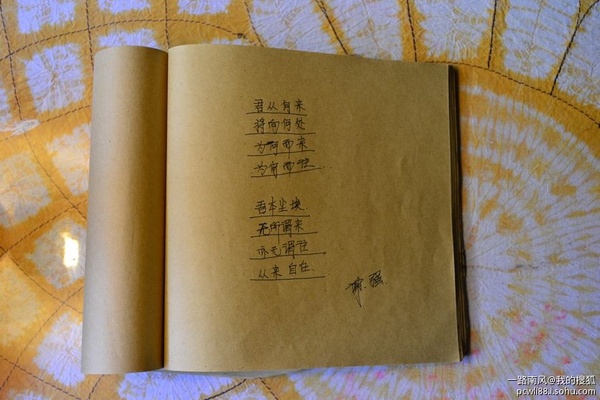 君从何来
将向何处
为何而来
为何而往...
吾本尘埃.
无所谓来
亦无谓往
从来自在.
一路南风@我的搜狐
pcwll88.i.sohu.com